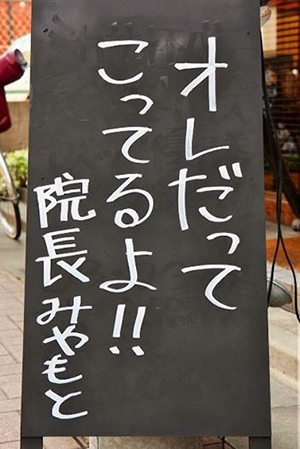 オレだって
こってるよ!!
院長みやもと